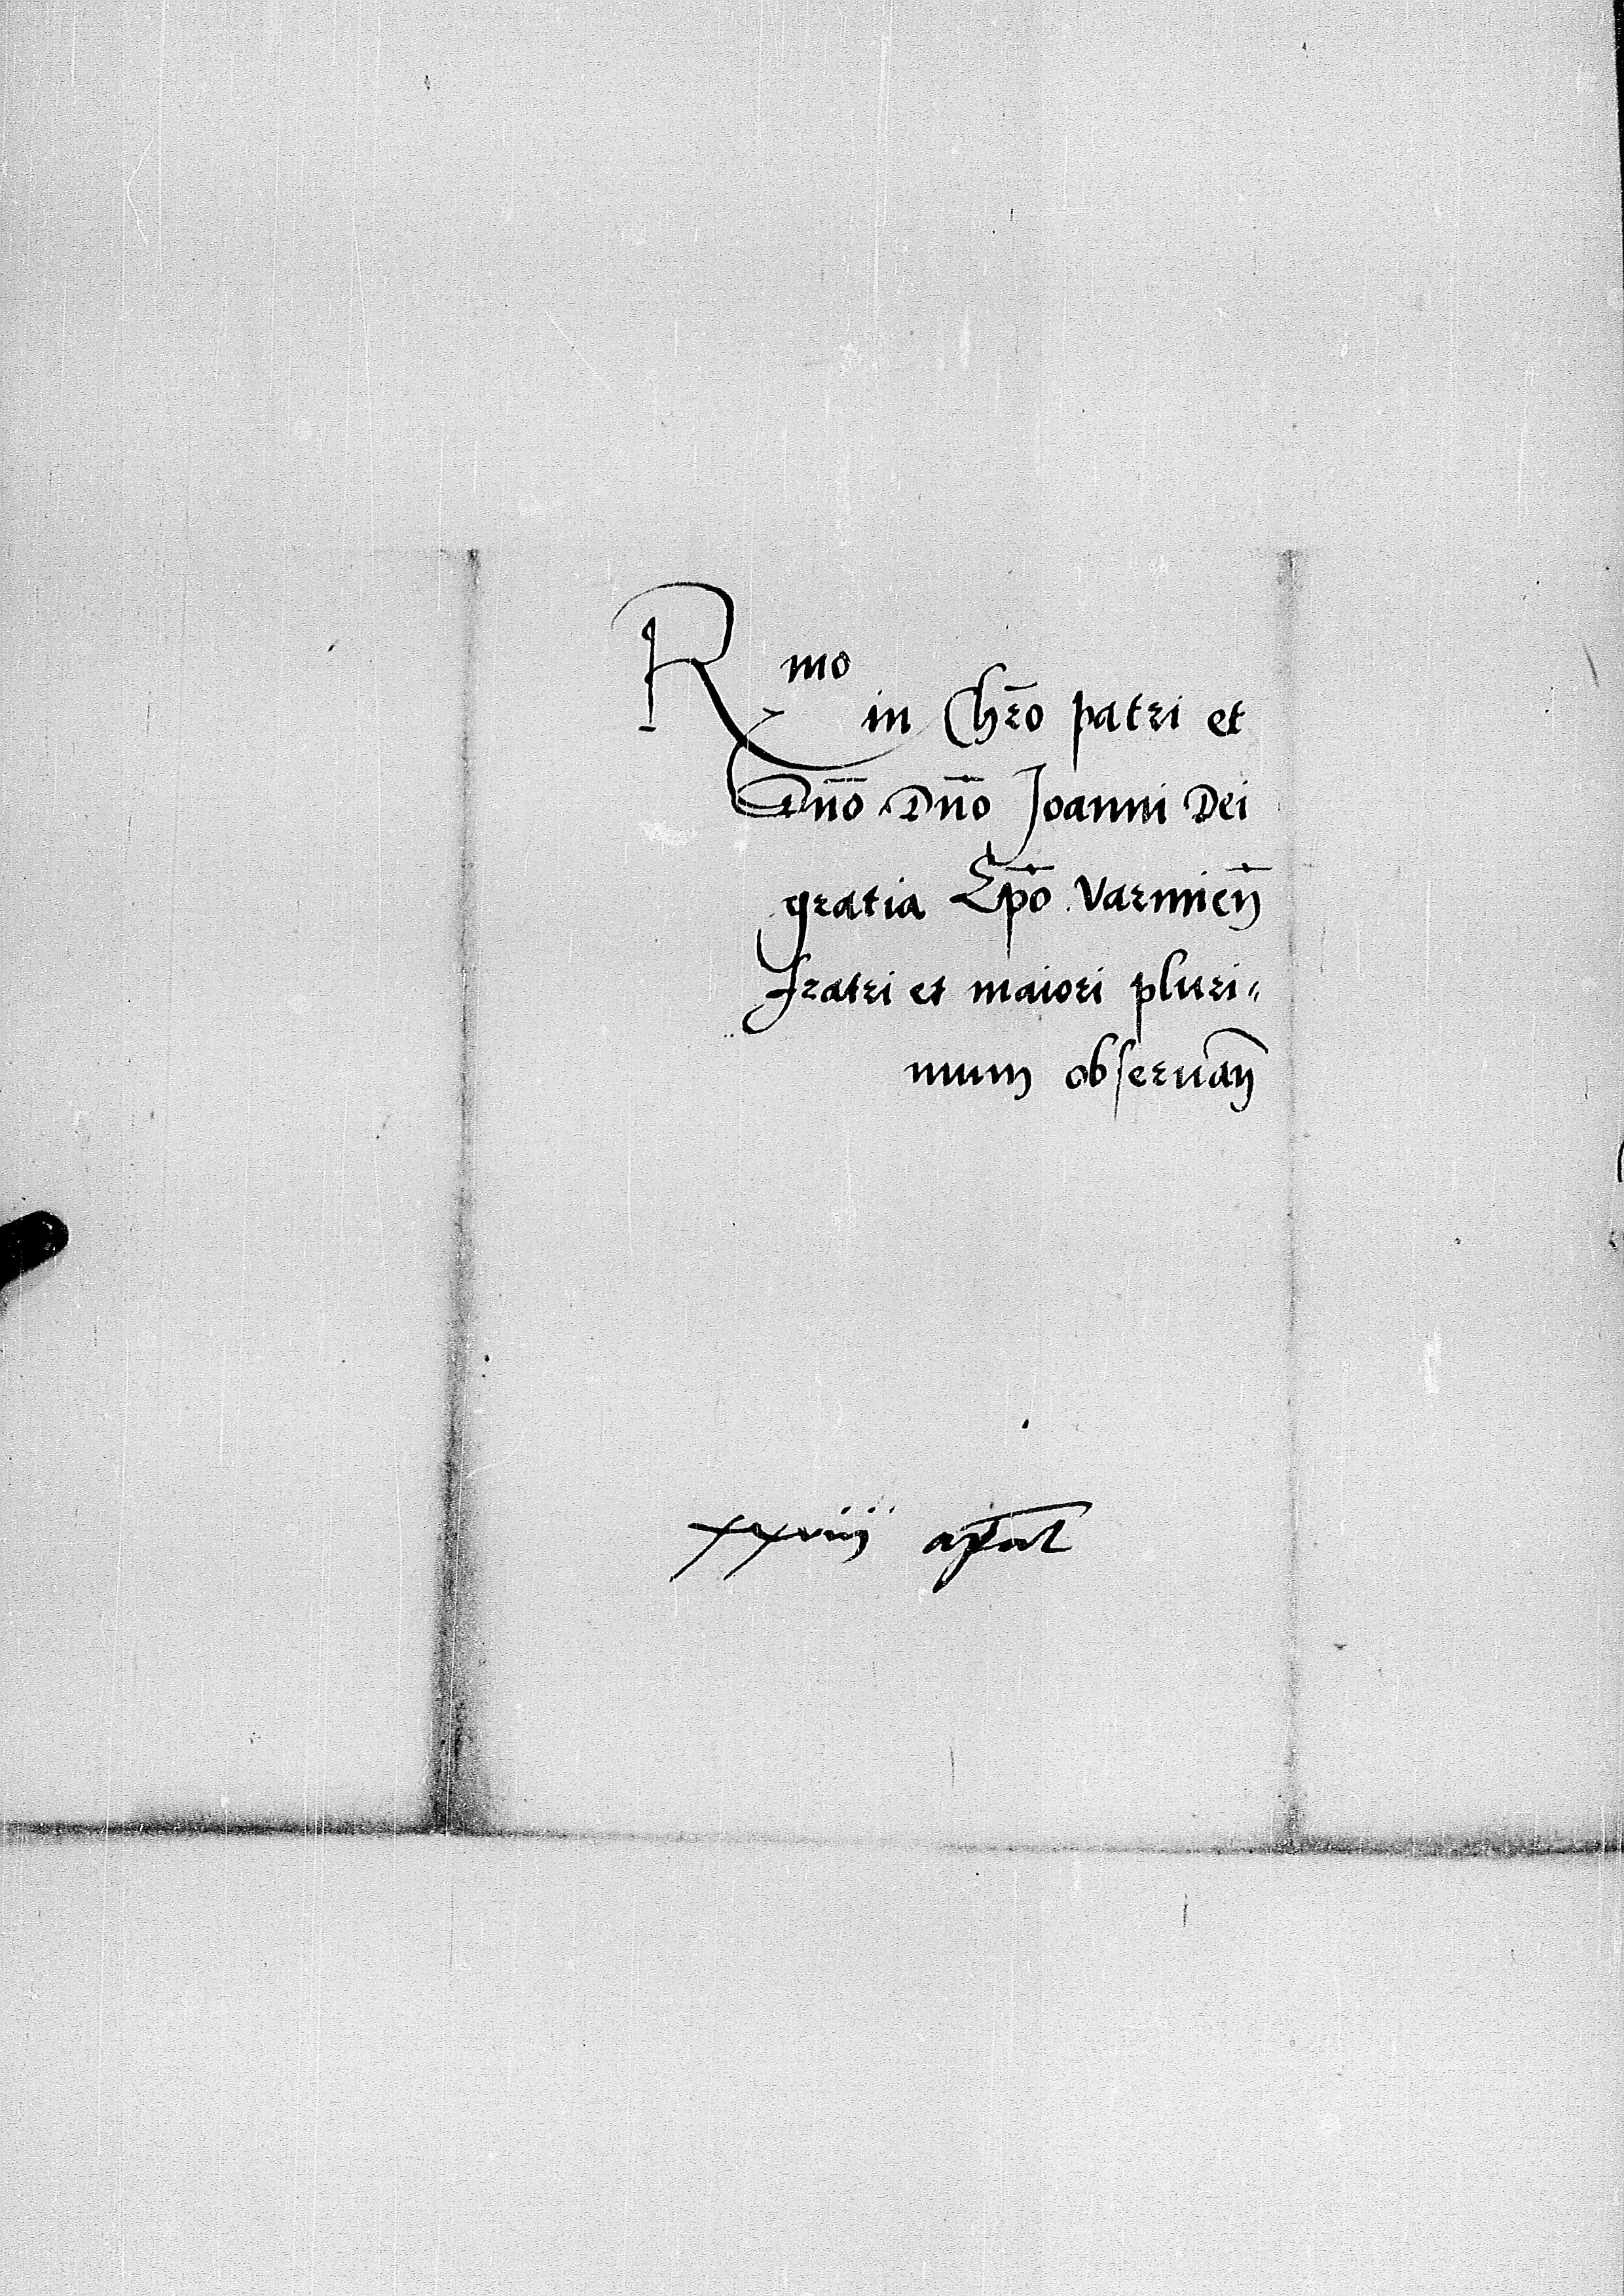 Rmo
in Chr̄o patri et
Dn̄o Dn̄o Joanni Dei
gratia Ep̄o Varmien̄
fratri et maiori pluri„
mum obseruan̄
xxviij